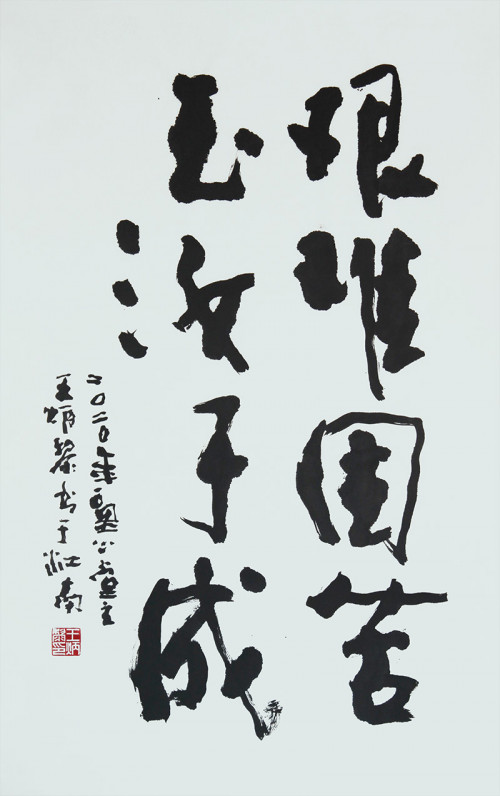 艰难困苦
玉汝于成
二〇二〇年公堂主
王炳黎书于江南
王炳